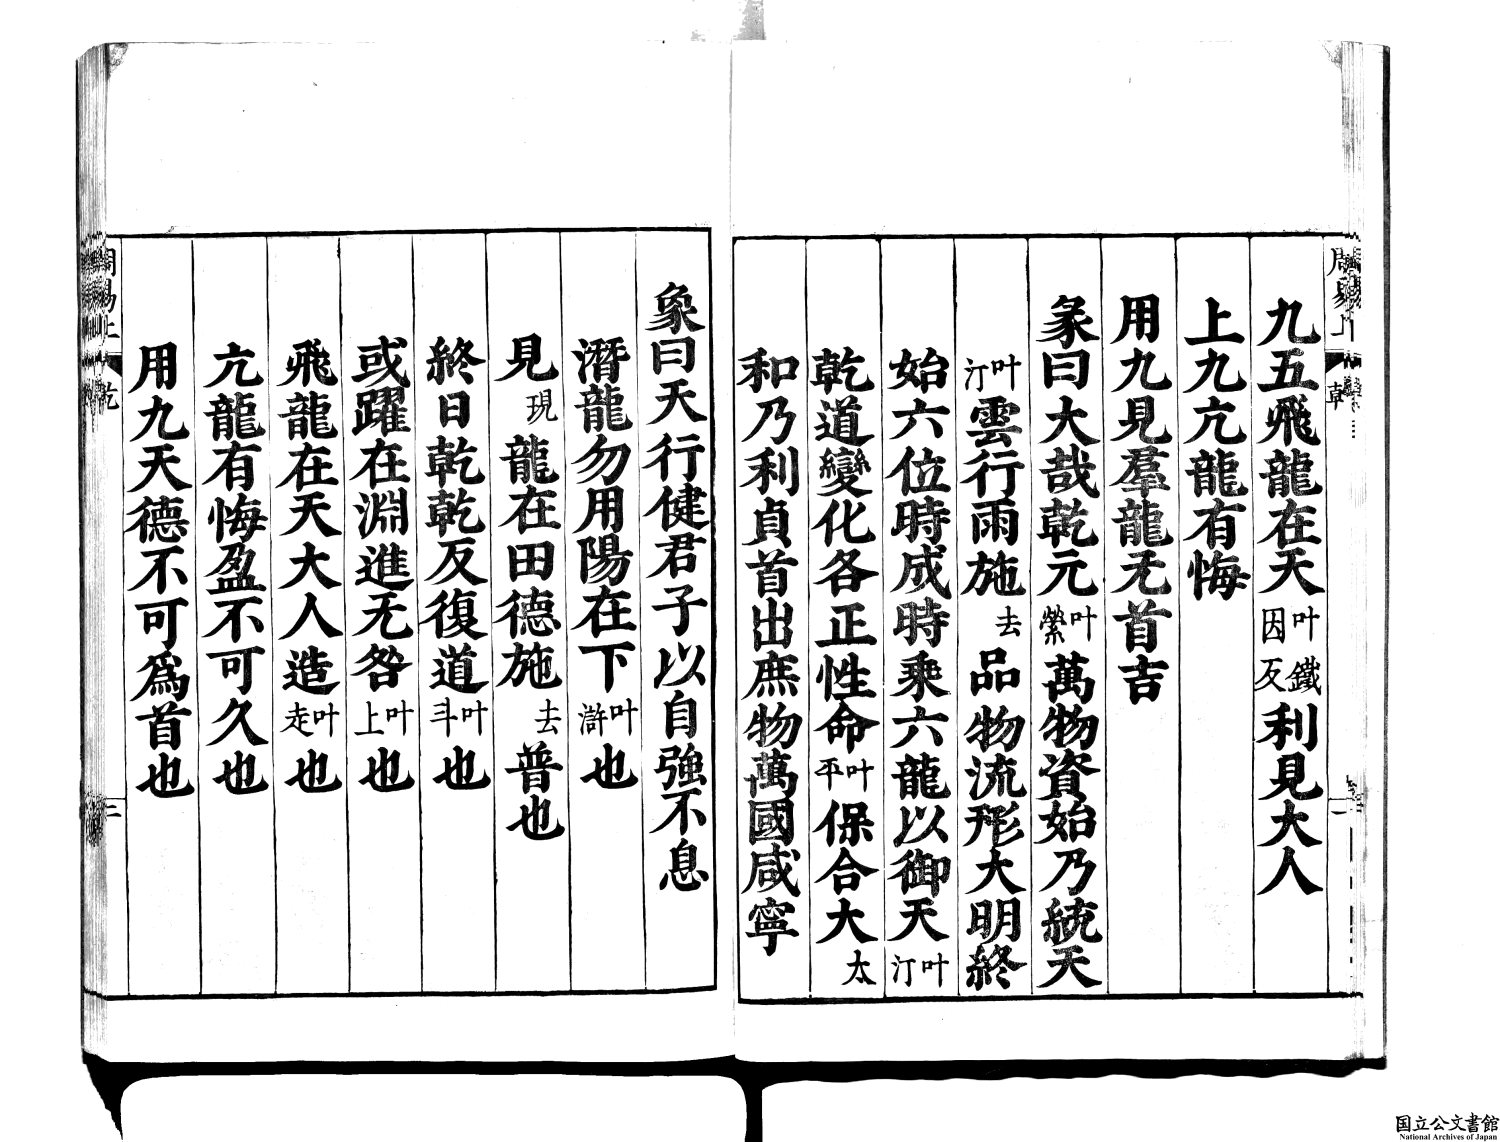 周易上
乾
九五飛龍在天叶鐵因反利見大人
上九亢龍有悔
用九見羣龍无首吉
彖曰大哉乾元叶縈萬物資始乃統天
叶汀雲行雨施去品物流形大明終
始六位時成時乘六龍以御天叶汀
乾道變化各正性命叶平保合大太
和乃利貞首出庶物萬國咸寧
象曰天行健君子以自強不息
潛龍勿用陽在下叶滸也
見現龍在田德施去普也
終日乾乾反復道叶斗也
或躍在淵進无咎叶上也
飛龍在天大人造叶走也
亢龍有悔盈不可久也
用九天德不可爲首也
周易上
乾
國立公文書館
National Archives of Japan